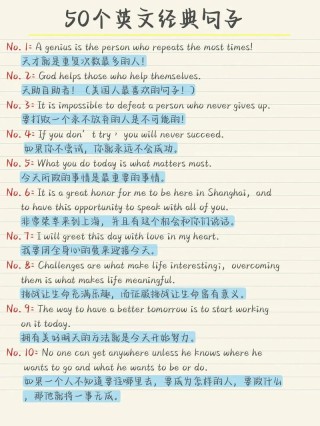 50个英文经典句子
No. 1: A genius is the person who repeats the most times!
天才就是重复次数最多的人!
No. 2: God helps those who help themselves.
天助自助者! (美国人最喜欢的句子!)
No. 3: It is impossible to defeat a person who never gives up.
要打败一个永不放弃的人是不可能的!
No. 4: If you don't try, you will never succeed.
如果你不尝试, 你就永远不会成功。
No. 5: What you do today is what matters most.
今天所做的事情是最重要的事情。
No. 6: It is a great honor for me to be here in Shanghai, and
to have this opportunity to speak with all of you.
非常荣幸来到上海, 并且有这个机会和你们说话。
No. 7: I will greet this day with love in my heart.
我要用全身心的爱来迎接今天。
No. 8: Challenges are what make life interesting; overcoming
them is what makes life meaningful.
挑战让生命充满乐趣, 而征服挑战让生命富有意义。
No. 9: The way to have a better tomorrow is to start working
on it today.
拥有美好明天的方法就是今天开始努力。
No. 10: No one can get anywhere unless he knows where he
wants to go and what he wants to be or do.
如果一个人不知道要往哪里去, 要成为怎样的人, 要做什么
, 那他就将一事无成。